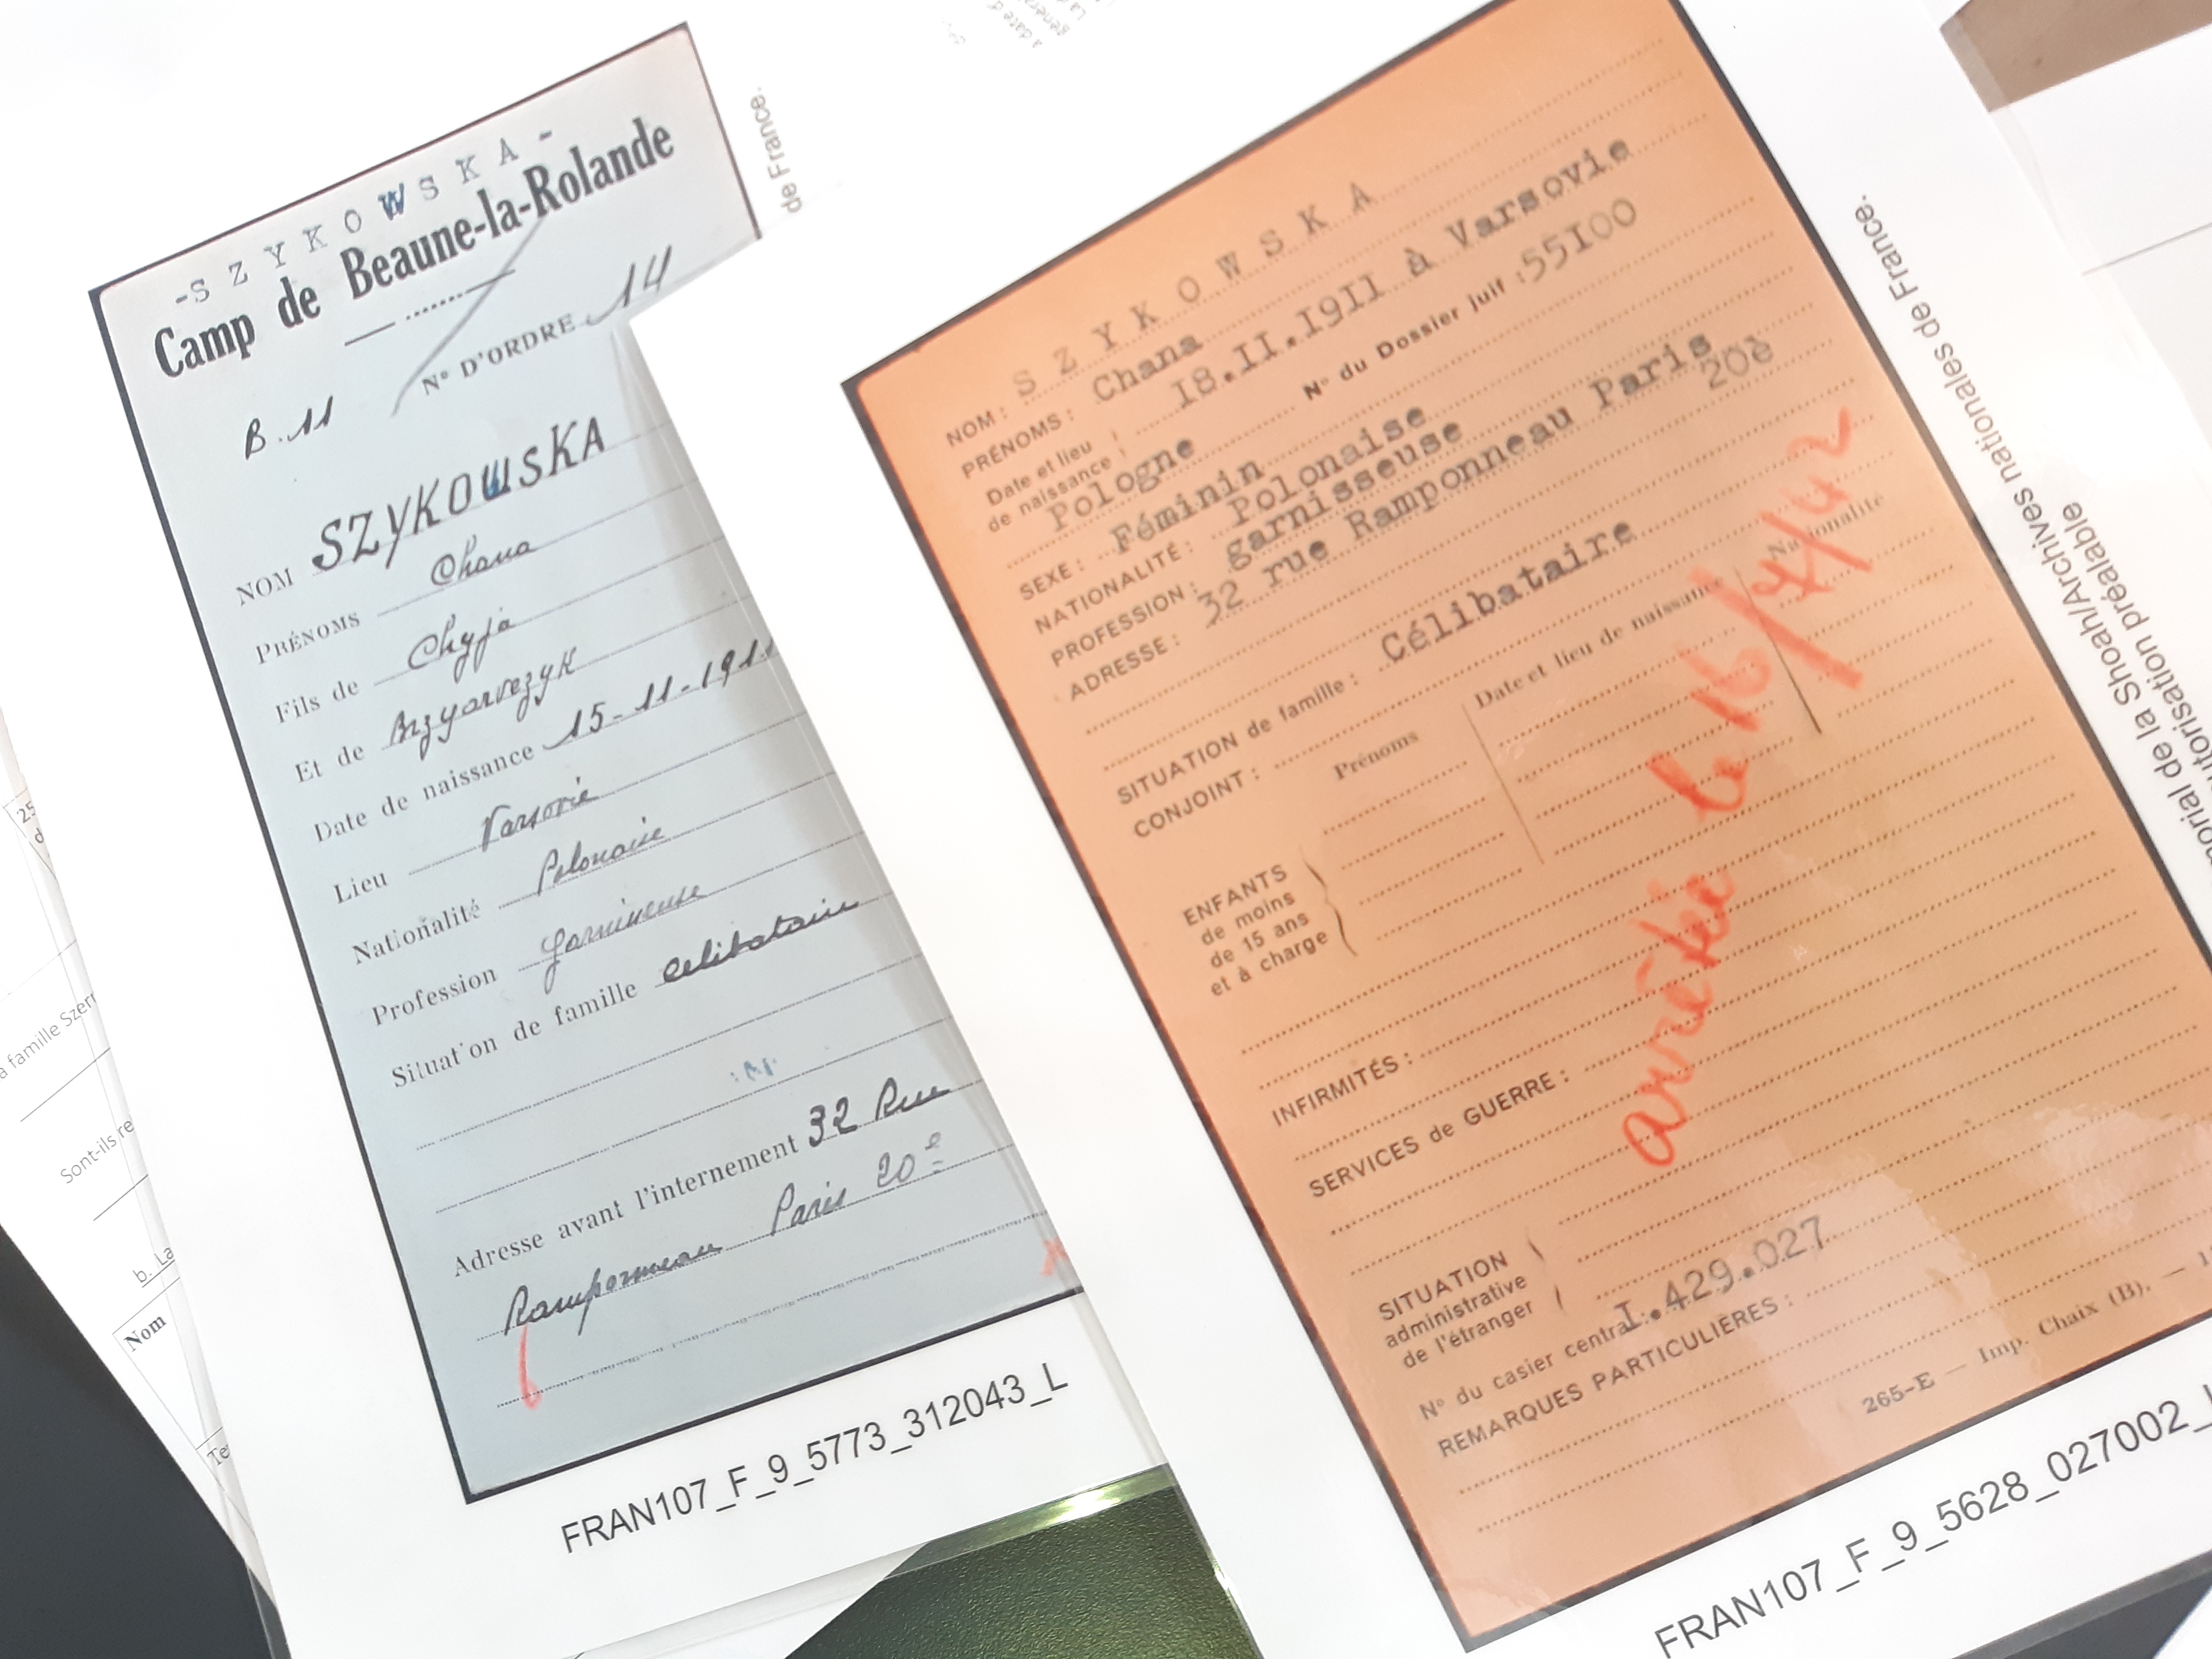 -SZYKOWSKA-
Camp de Beaune-la-Rolande
N° D'ORDRE 14
B.11
NOM SZYKOWSKA
PRÉNOMS Chana
Fils de Chyja
Et de
Date de naissance 15-11-1911
Lieu Varsovie
Nationalité Polonaise
Profession
Situation de famille celibataire
Adresse avant l'internement 32 Rue
Ramponneau Paris 20e
FRAN107_F_9_5773_312043_L
de France.
NOM: SZYKOWSKA
PRÉNOMS: Chana
Date et lieu de naissance 18.II.1911 à Varsovie
Pologne N° du Dossier juif: 55100
SEXE: Féminin
NATIONALITÉ: Polonaise
PROFESSION: garnisseuse
ADRESSE: 32 rue Ramponneau Paris
20è
SITUATION de famille: Célibataire
CONJOINT:
Prénoms Date et lieu de naissance Nationalité
ENFANTS
de moins
de 15 ans
et à charge
arrêtée le 16/7/42
INFIRMITÉS:
SERVICES de GUERRE:
SITUATION
administrative
de l'étranger
N° du casier central: I.429.027
REMARQUES PARTICULIÈRES:
265-E — Imp. Chaix (B). —
FRAN107_F_9_5628_027002_
de la Shoah/Archives nationales de France.
préalable
famille
Sont-ils
b. La
Nom